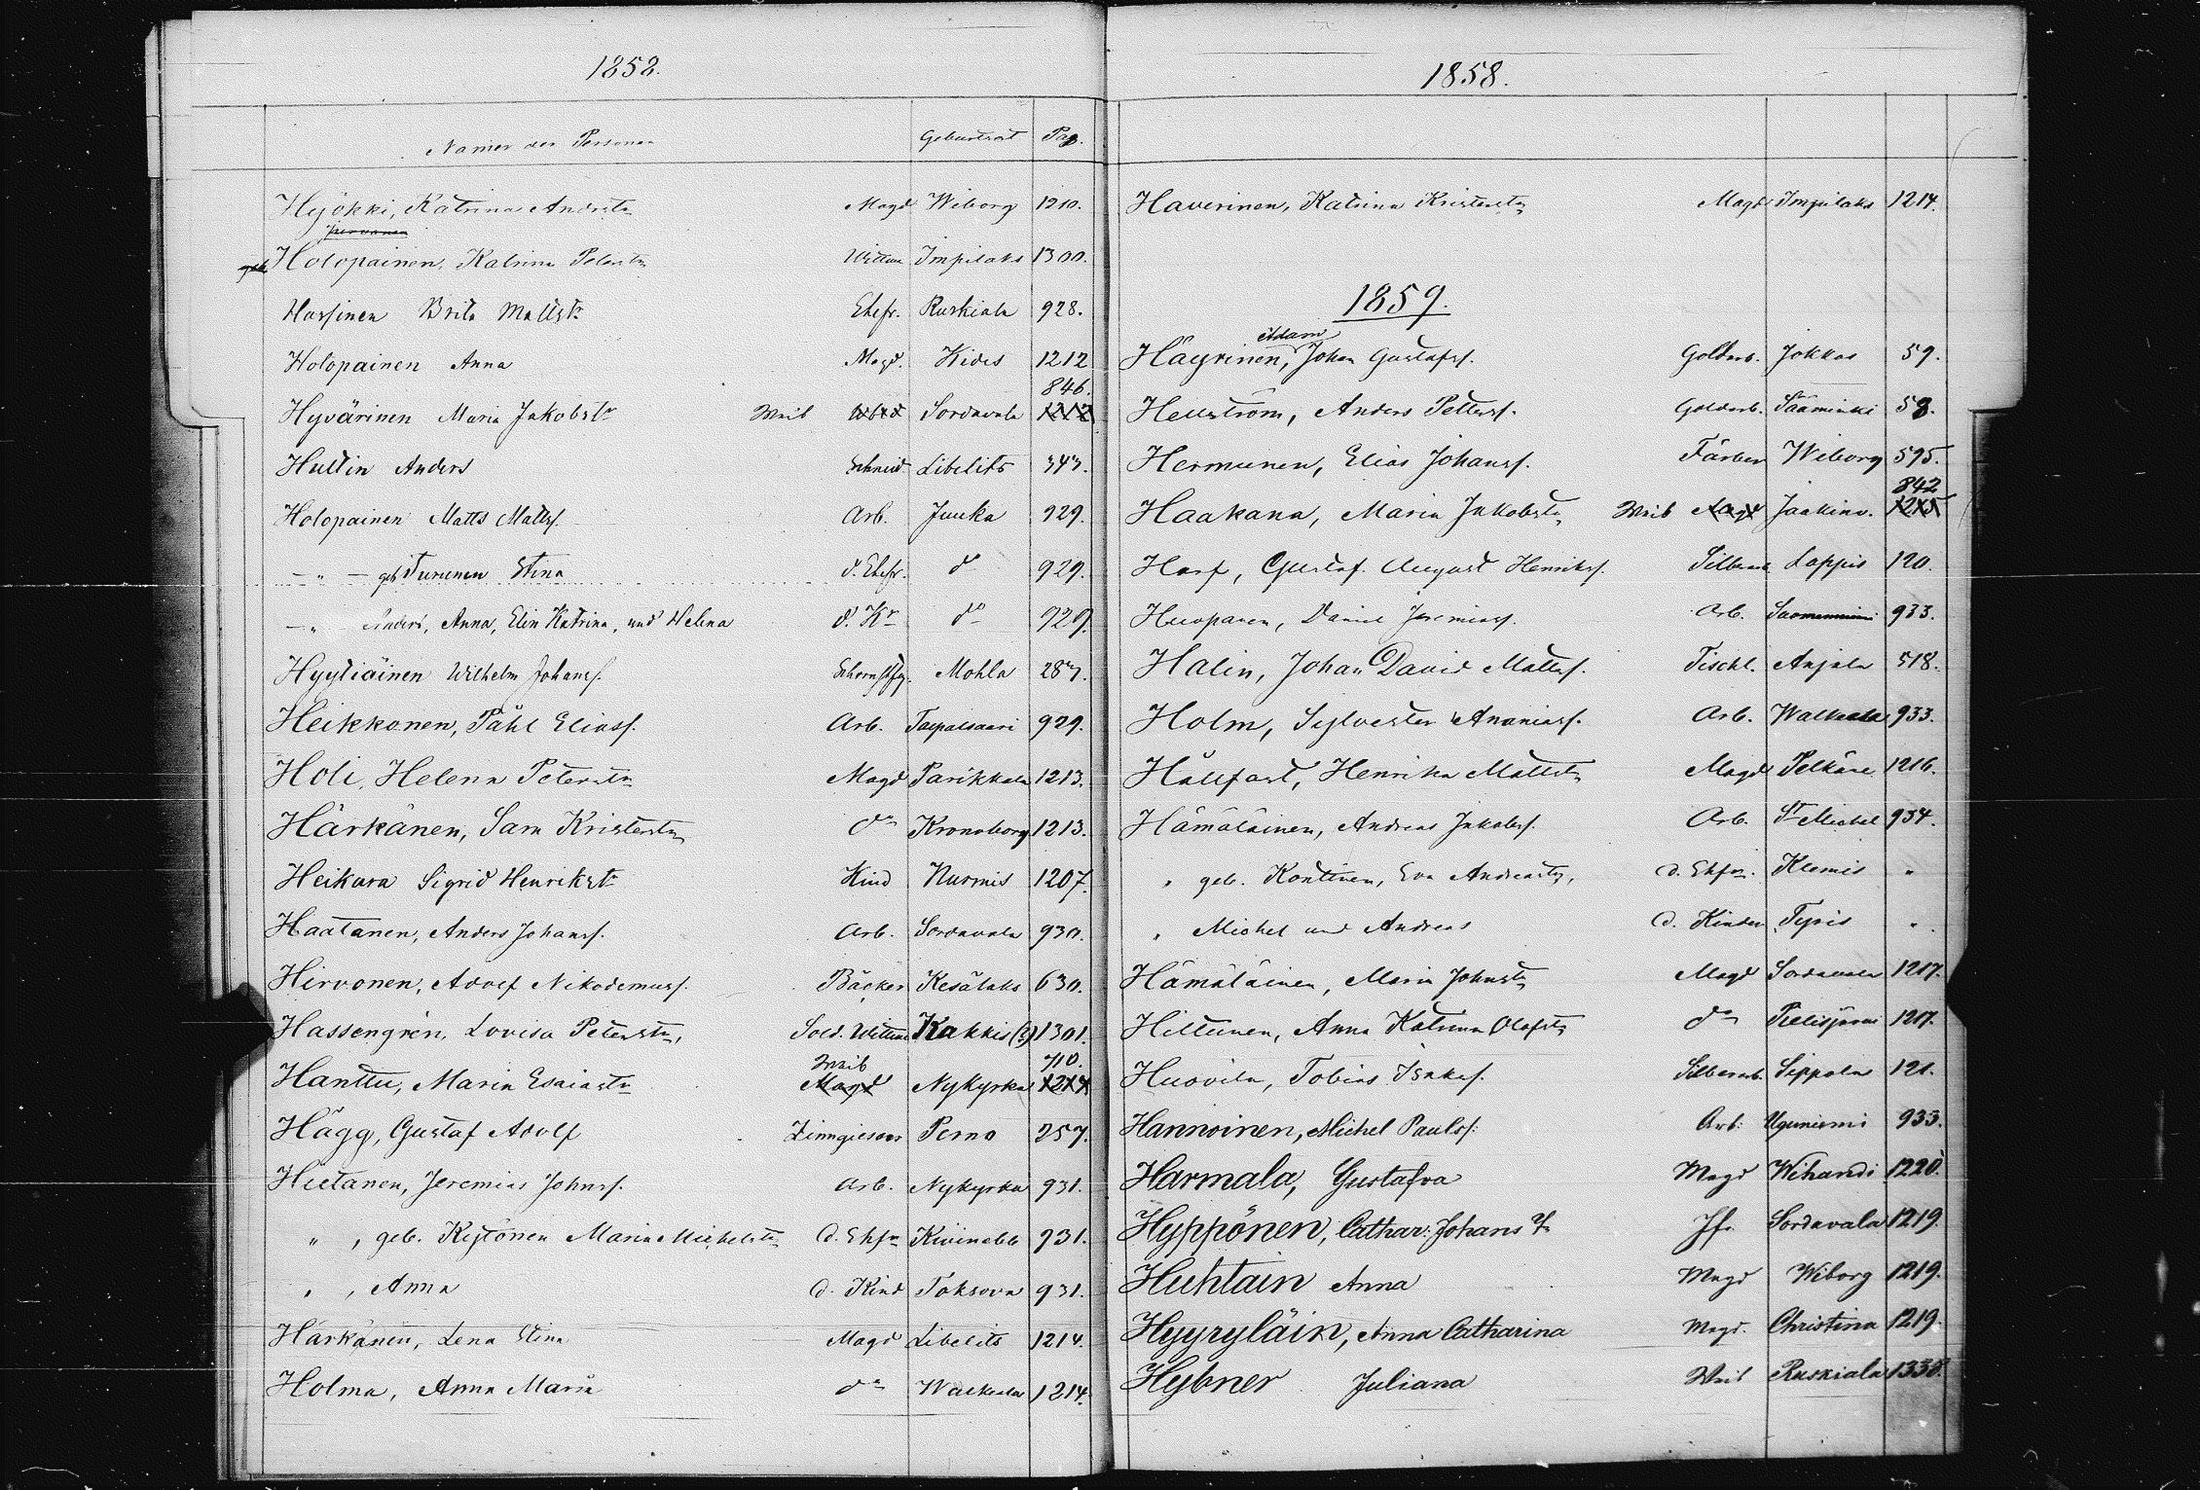 1858.
Namen der Personen Geburtsort Pag.
Hyökki, Katrina Andrstr Magd Wiborg 1210.
Holopainen, Katrina Peterstr Wittwe Impilaks 1300.
Hassinen Brita Mattstr Ehefr. Ruskiala 928.
Holopainen Anna Magd. Kides 1212
846.
Hyvärinen Maria Jakobstr Weib Sordavala 1212
Hultin Anders Schneid Libelits 343.
Holopainen Matts Mattsf. Arb. Juuka 929.
— " — geb Turunen Stina d. Ehefr. do 929.
— " Anders, Anna, Elin Katrina, und Helena d. Kr do 929.
Hyytiäinen Wilhelm Johansf. Schornstfg. Mohla 287.
Heikkonen, Påhl Eliasf. Arb. Taipalsaari 929.
Holi, Helena Peterstr Magd Parikkala 1213.
Härkänen, Sara Kristerstr do Kronoborg 1213.
Heikura Sigrid Henrikstr Kind Nurmis 1207.
Haatanen, Anders Johansf. Arb. Sordavala 930.
Hirvonen, Adolf Nikodemusf. Bäcker Kesälaks 630.
Hassengrén, Lovisa Peterstr, Sold. Wittwe Kakkis (?) 1301.
Weib 710.
Hanttu, Maria Esaiastr Magd Nykyrka 1214
Hägg, Gustaf Adolf Zinngiesser Perno 257.
Hietanen, Jeremias Johnsf. Arb. Nykyrka 931.
" , geb. Kytönen Maria Michelstr d. Ehfr Kivinebb 931.
" , Anna d. Kind Toksova 931.
Härkänen, Lena Stina Magd Libelits 1214.
Holma, Anna Maria do Walkeala 1214.
1858.
Haverinen, Katrina Kristerstr Magd Impilaks 1214.
1859.
Adam
Häyrinen, Johan Gustafsf. Goldarb. Jokkas 59.
Hellström, Anders Pettersf. Goldarb. Sääminki 58.
Hermunen, Elias Johansf. Färber Wiborg 595.
842
Haakana, Maria Jakobstr Weib Magd Jaakim. 1215
Hasf, Gustaf August Henriksf. Silberarb. Loppis 120.
Huopanen, Daniel Jeremiasf. Arb. Suomenniemi 933.
Halin, Johan David Mattsf. Tischl. Anjala 518.
Holm, Sylvester Ananiasf. Arb. Walkeala 933.
Hällfast, Henrika Mattstr Magd Pelkäne 1216.
Hämäläinen, Andreas Jakobsf. Arb. St Michel 934.
" geb. Kontinen, Eva Andreastr, d. Ehfr. Klemis "
" Michel und Andreas d. Kinder Tyris "
Hämäläinen, Maria Johnstr Magd Sordavala 1217.
Hiltunen, Anna Katrina Olofstr do Pielisjärvi 1217.
Huovila, Tobias Isaksf. Silberarb. Sippola 121.
Hannoinen, Michel Paulsf. Arb. Uguniemi 933.
Harmala, Gustafva Magd Wihandi 1220.
Hyppönen, Cathar: Johans tr Jfr. Sordavala 1219.
Huhtain Anna Magd Wiborg 1219.
Hyyryläin, Anna Catharina Magd. Christina 1219.
Hybner Juliana Weib Ruskiala 1330.